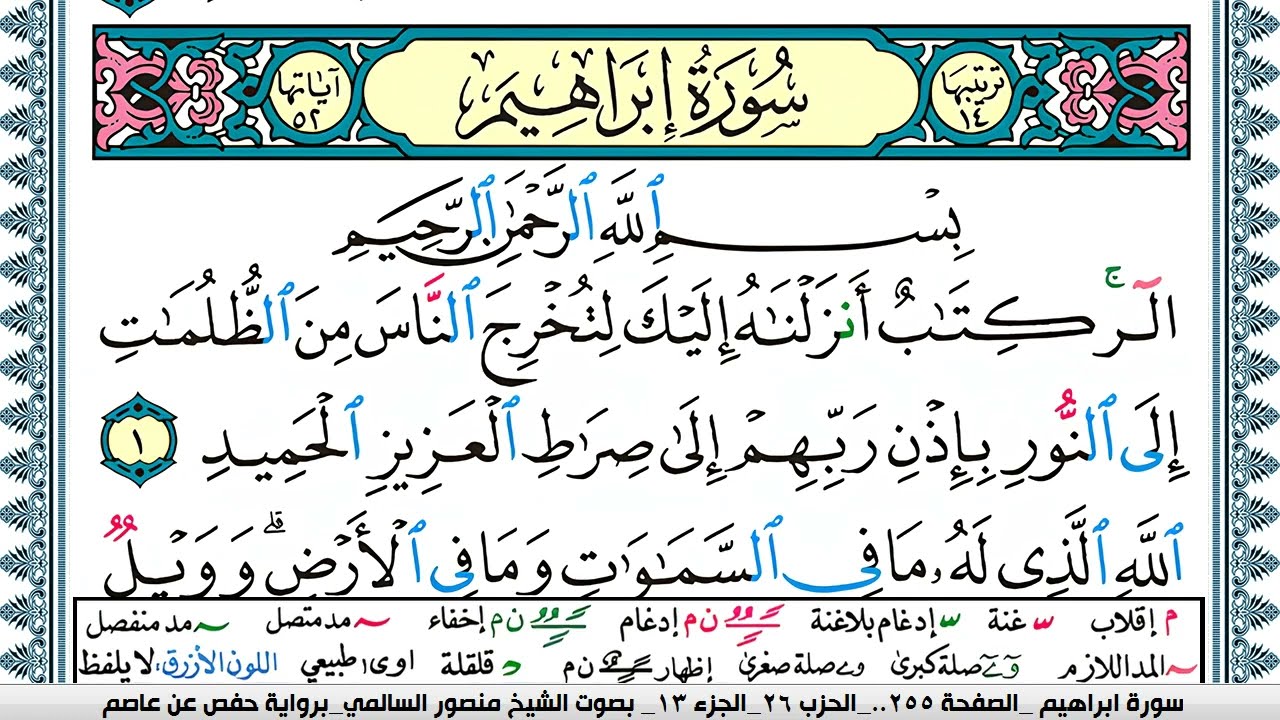 ترتيبها ١٤ سُورَةُ إِبْرَاهِيمَ آيَاتُها ٥٢
بِسْمِ ٱللَّهِ ٱلرَّحْمَٰنِ ٱلرَّحِيمِ
الٓرۚ كِتَٰبٌ أَنزَلْنَٰهُ إِلَيْكَ لِتُخْرِجَ ٱلنَّاسَ مِنَ ٱلظُّلُمَٰتِ
إِلَى ٱلنُّورِ بِإِذْنِ رَبِّهِمْ إِلَىٰ صِرَٰطِ ٱلْعَزِيزِ ٱلْحَمِيدِ ١
ٱللَّهِ ٱلَّذِى لَهُۥ مَا فِى ٱلسَّمَٰوَٰتِ وَمَا فِى ٱلْأَرْضِۗ وَوَيْلٌ
م إقلاب غنة إدغام بلاغنة ن م إدغام ن م إخفاء مد متصل مد منفصل
المد اللازم و ے صلة كبرى و ے صلة صغرى إظهار ن م قلقلة اوى طبيعي اللون الأزرق: لا يلفظ
سورة ابراهيم _الصفحة ٢٥٥.._الحزب ٢٦_الجزء ١٣_ بصوت الشيخ منصور السالمي_برواية حفص عن عاصم